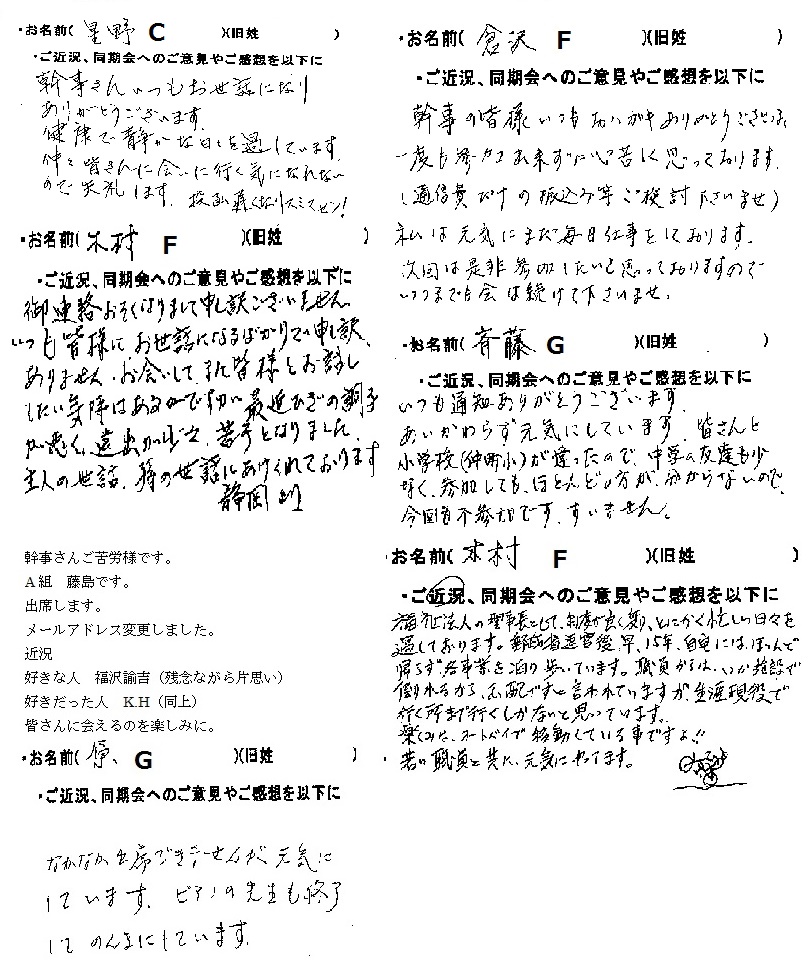 ・お名前( 星野 C )(旧姓 )
・ご近況、同期会へのご意見やご感想を以下に
幹事さんいつもお世話になり
ありがとうございます。
健康で静かな日々を過しています。
仲々皆さんに会いに行く気になれない
ので失礼します。 遅くなりスミマセン!
・お名前( 木村 F )(旧姓 )
・ご近況、同期会へのご意見やご感想を以下に
御連絡おそくなりまして申し訳ございません
いつも皆様にお世話になるばかりで申し訳
ありません。お会いして、また皆様とお話し
したい気持はあるのですが、最近ひざの調子
が悪く、遠出が苦手となりました。
主人の世話、孫の世話にあけくれております
静岡
幹事さんご苦労様です。
A組 藤島です。
出席します。
メールアドレス変更しました。
近況
好きな人 福沢諭吉(残念ながら片思い)
好きだった人 K.H(同上)
皆さんに会えるのを楽しみに。
・お名前( G )(旧姓 )
・ご近況、同期会へのご意見やご感想を以下に
なかなか出席できませんが元気に
しています。ピアノの先生も終了
して のんきにしています。
・お名前( 倉沢 F )(旧姓 )
・ご近況、同期会へのご意見やご感想を以下に
幹事の皆様いつもおハガキありがとうございます
一度も参加出来ずに心苦しく思っております。
(通信費だけの振込み等ご検討下さいませ)
私は元気にまだ毎日仕事をしております。
次回は是非参加したいと思っておりますので
いつまでも会は続けて下さいませ。
・お名前( 斉藤 G )(旧姓 )
・ご近況、同期会へのご意見やご感想を以下に
いつも通知ありがとうございます。
あいかわらず元気にしています。皆さんと
小学校(仲町小)が違ったので、中学の友達も少
なく、参加しても、ほとんどの方が、分からないので、
今回も不参加です。すいません。
・お名前( 木村 F )(旧姓 )
・ご近況、同期会へのご意見やご感想を以下に
福祉法人の理事長として、制度が良く変り、とにかく忙しい日々を
過しております。郵政省退官後、早、15年、自宅には、ほとんど
帰らず各事業を泊り歩いています。職員からは、いつか施設で
倒れるから、心配ですと言われていますが、生涯現役で
行く所まで行くしかないと思っています。
楽しみは、オートバイで移動している事ですよ!!
若い職員と共に、元気にやってます。